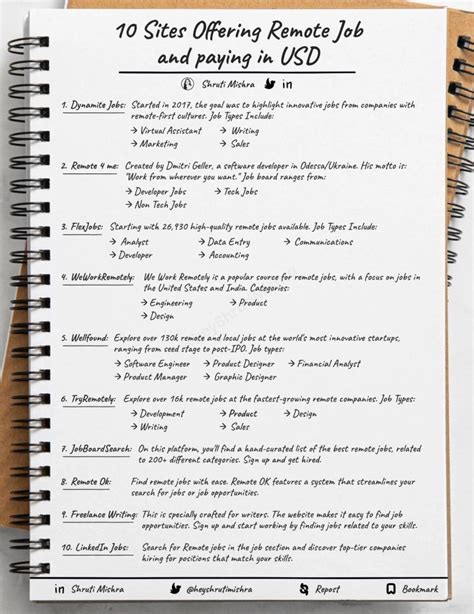 10 Sites Offering Remote Job
and paying in USD
Shruti Mishra in
1. Dynamite Jobs: Started in 2017, the goal was to highlight innovative jobs from companies with
remote-first cultures. Job Types Include:
→ Virtual Assistant → Writing
→ Marketing → Sales
2. Remote 4 me: Created by Dmitri Geller, a software developer in Odessa/Ukraine. His motto is:
"Work from wherever you want." Job board ranges from:
→ Developer Jobs → Tech Jobs
→ Non Tech Jobs
3. FlexJobs: Starting with 26,930 high-quality remote jobs available. Job Types Include:
→ Analyst → Data Entry → Communications
→ Developer → Accounting
4. WeWorkRemotely: We Work Remotely is a popular source for remote jobs, with a focus on jobs in
the United States and India. Categories:
→ Engineering → Product
→ Design
5. Wellfound: Explore over 130k remote and local jobs at the world's most innovative startups,
ranging from seed stage to post-IPO. Job types:
→ Software Engineer → Product Designer → Financial Analyst
→ Product Manager → Graphic Designer
6. TryRemotely: Explore over 16k remote jobs at the fastest-growing remote companies. Job Types:
→ Development → Product → Design
→ Writing → Sales
7. JobBoardSearch: On this platform, you'll find a hand-curated list of the best remote jobs, related
to 200+ different categories. Sign up and get hired.
8. Remote Ok: Find remote jobs with ease. Remote OK features a system that streamlines your
search for jobs or job opportunities.
9. Freelance Writing: This is specially crafted for writers. The website makes it easy to find job
opportunities. Sign up and start working by finding jobs related to your skills.
10. LinkedIn Jobs: Search for Remote jobs in the job section and discover top-tier companies
hiring for positions that match your skills.
in Shruti Mishra @heyshrutimishra Repost Bookmark